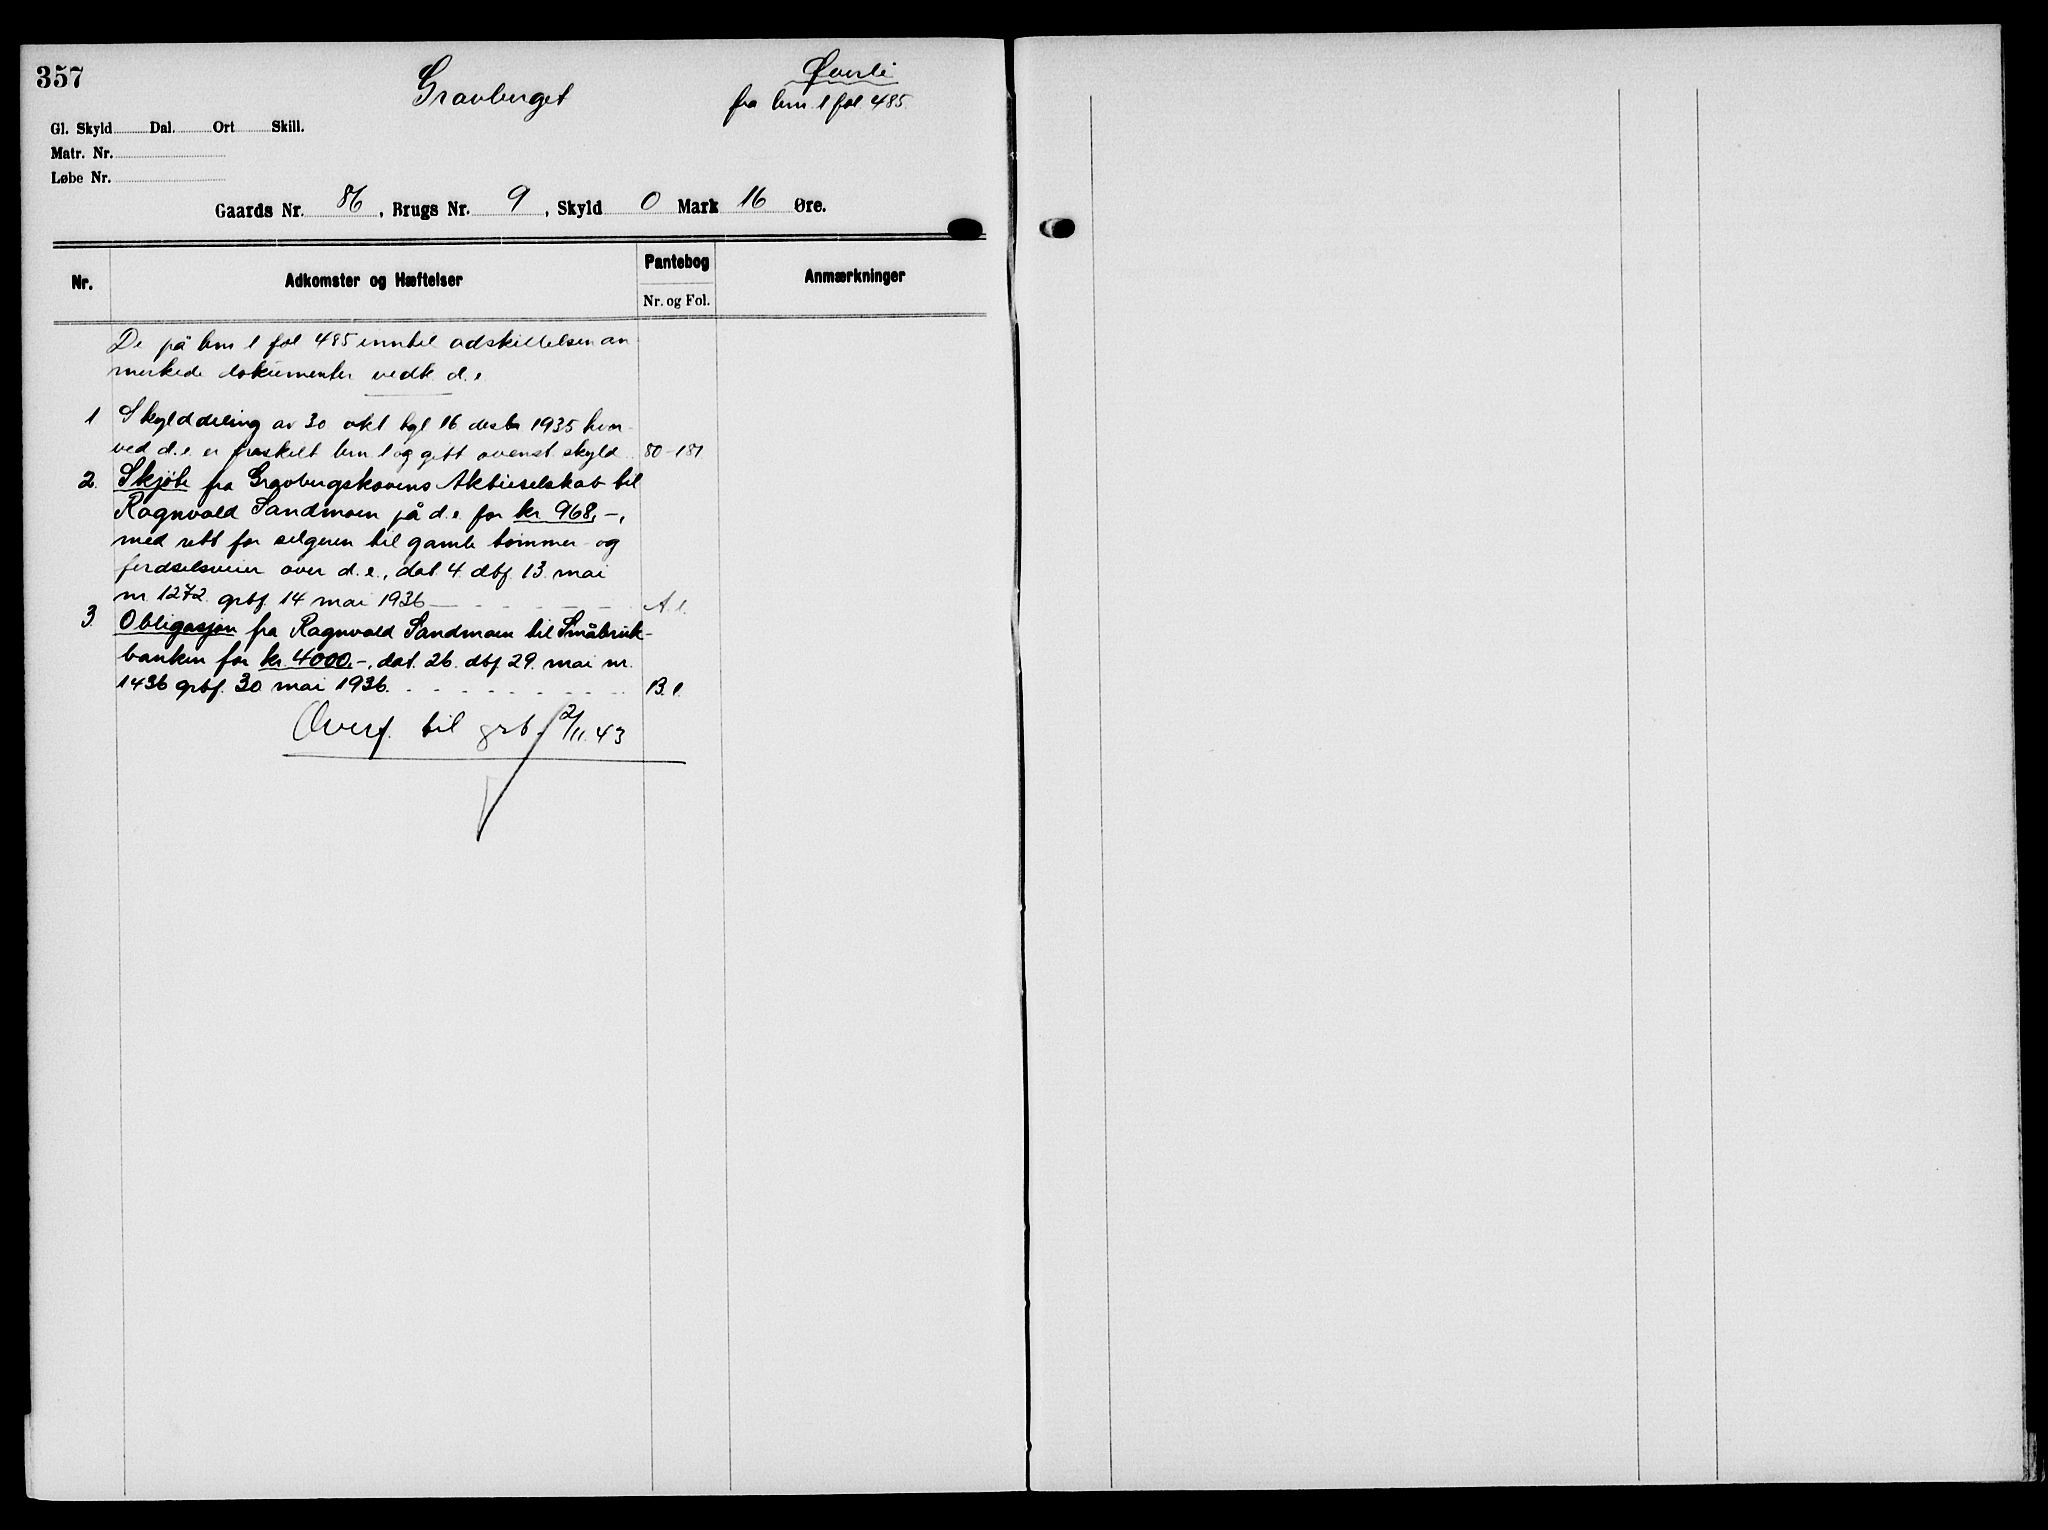 357
Gravberget
Øverli
fra brn. 1 fol. 485.
Gl. Skyld Dal. Ort Skill.
Matr. Nr.
Løbe Nr.
Gaards Nr. 86, Brugs Nr. 9, Skyld 0 Mark 16 Øre.
Nr. Adkomster og Hæftelser Pantebog Anmærkninger
Nr. og Fol.
De på brn 1 fol 485 inntil adskillelsen an-
merkede dokumenter vedk. d.e
1 Skylddeling av 30 okt tgl 16 desbr 1935 hvor-
ved d.e. er fraskilt brn 1 og gitt ovenst skyld 80-181
2. Skjöte fra Gravbergskovens Aktieselskab til
Ragnvald Sandmoen på d.e. for kr 968,-,
med rett for selgeren til gamle tömmer- og
ferdselsveier over d.e., dat 4. dbf. 13. mai
nr. 1272. grbf. 14 mai 1936 A. 1.
3. Obligasjon fra Ragnvald Sandmoen til Småbruk-
banken for kr. 4000.-, dat. 26. dbf. 29. mai nr.
1436 grbf. 30 mai 1936. B. 1.
Overf. til grb. 2/11.43